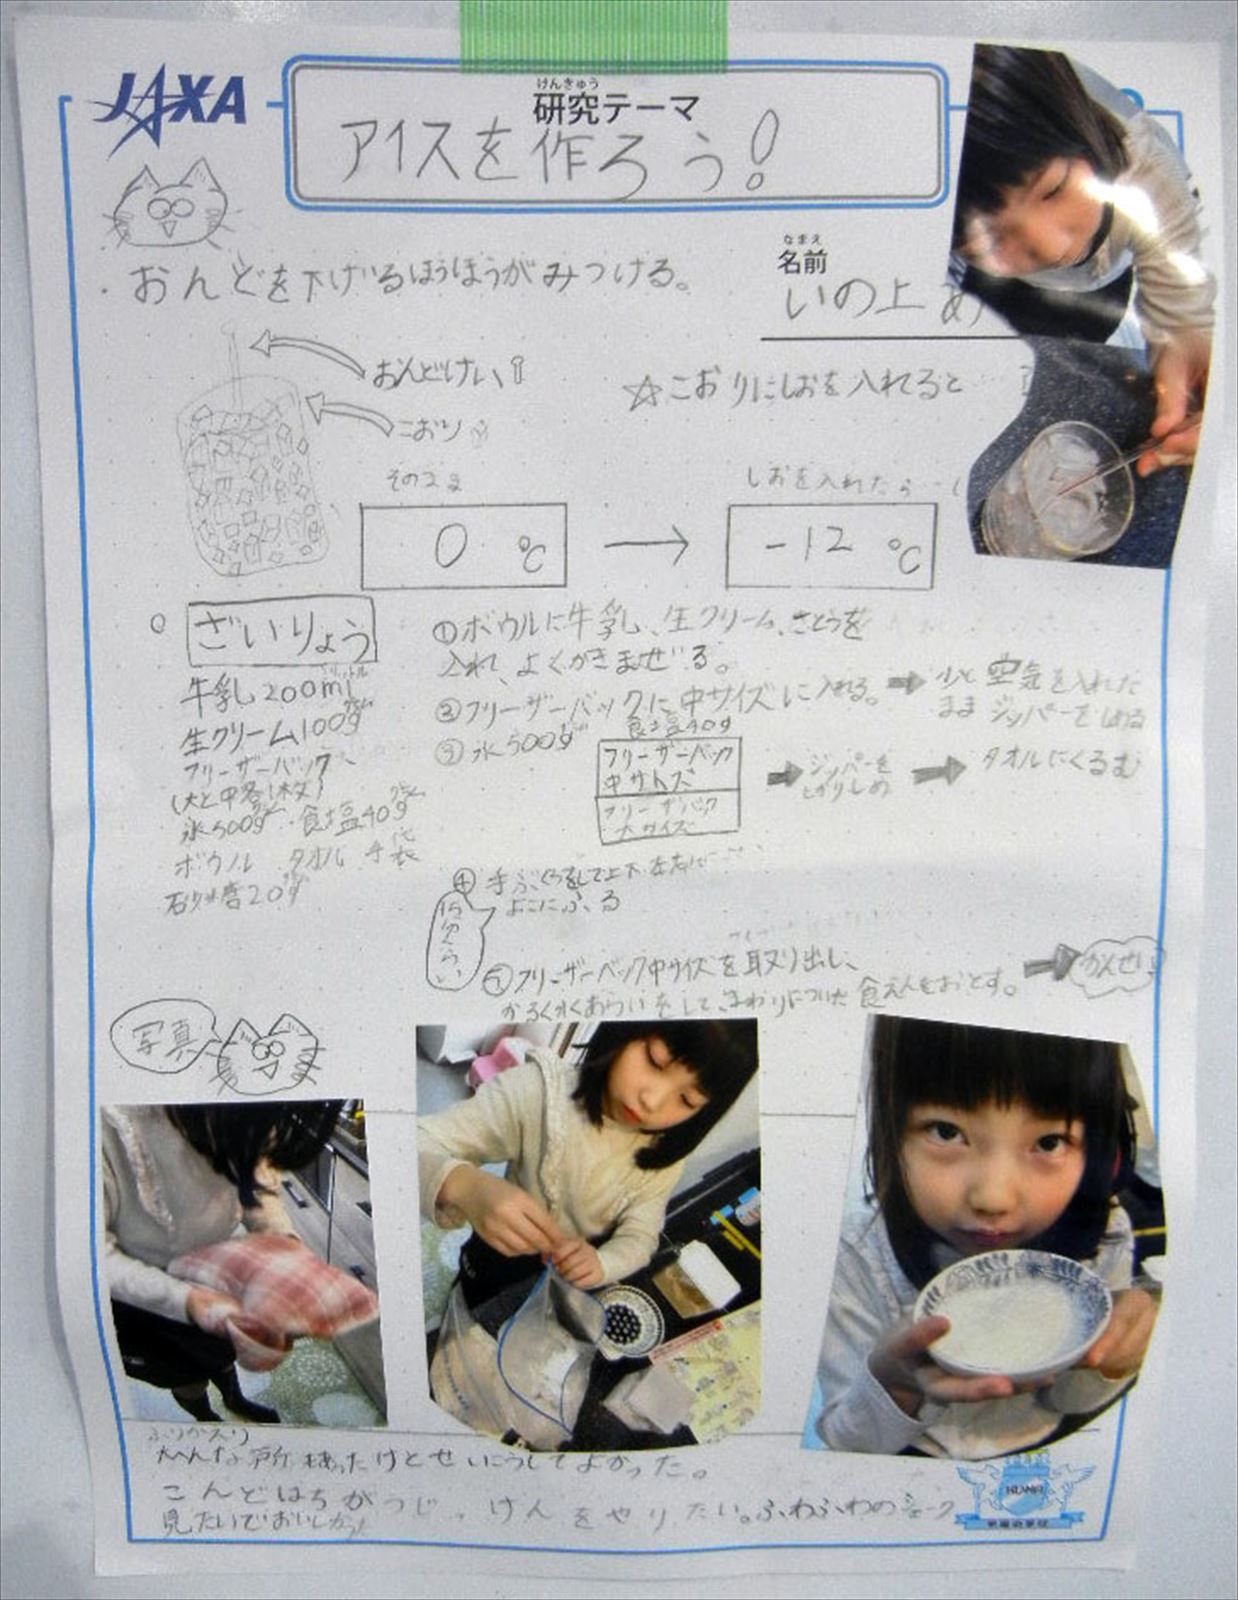 JAXA
けんきゅう
研究テーマ
アイスを作ろう!
おんどを下げるほうほうがみつける。
なまえ
名前
いの上 あ
おんどけい
こおり
☆こおりにしおを入れると
そのまま
0 ℃
しおを入れたら…
-12 ℃
ざいりょう
牛乳200ml
生クリーム100g
フリーザーバック
(大と中各1枚)
氷500g 食塩40g
ボウル タオル 手袋
砂糖20g
①ボウルに牛乳、生クリーム、さとうを
入れ、よくかきまぜる。
②フリーザーバックに中サイズに入れる。
少と空気を入れた
ままジッパーをしめる
③氷500g 食塩40g
フリーザーバック
中サイズ
フリーザバック
大サイズ
ジッパーを
しめ
タオルにくるむ
④手ぶくろをして上下左右
よこにふる
⑤フリーザーバック中サイズを取り出し、
かるく水あらいをして、まわりについた食えんをおとす。
かんせい
写真
ふりかえり
大へんな所もあったけどせいこうしてよかった。
こんどはちがうじっけんをやりたい。ふわふわのシェーク
見たいでおいしかった